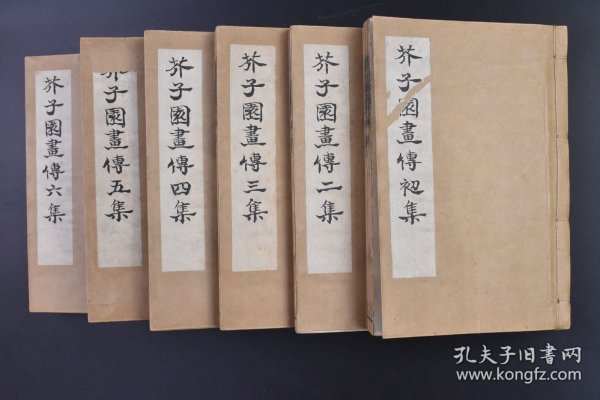 芥子園畫傳初集
芥子園畫傳二集
芥子園畫傳三集
芥子園畫傳四集
芥子園畫傳五集
芥子園畫傳六集
孔夫子旧书网
www.kongfz.com